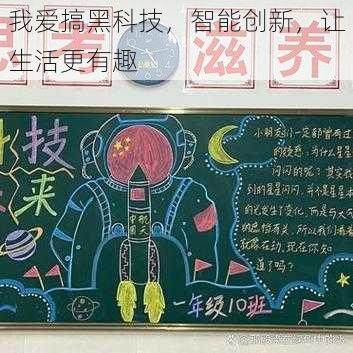 我爱搞黑科技，智能创新，让
生活更有趣
考 滋养
技
来
小朋友们一定都曾有过
的疑惑:为什么星星
闪闪的呢?其实我
到的星星闪闪,并不是星星
的光发生了变化,而是与大气
的遮挡有关,所以我们看着
就像在动,现在你知
道了吗?
中国航天
一年级10班